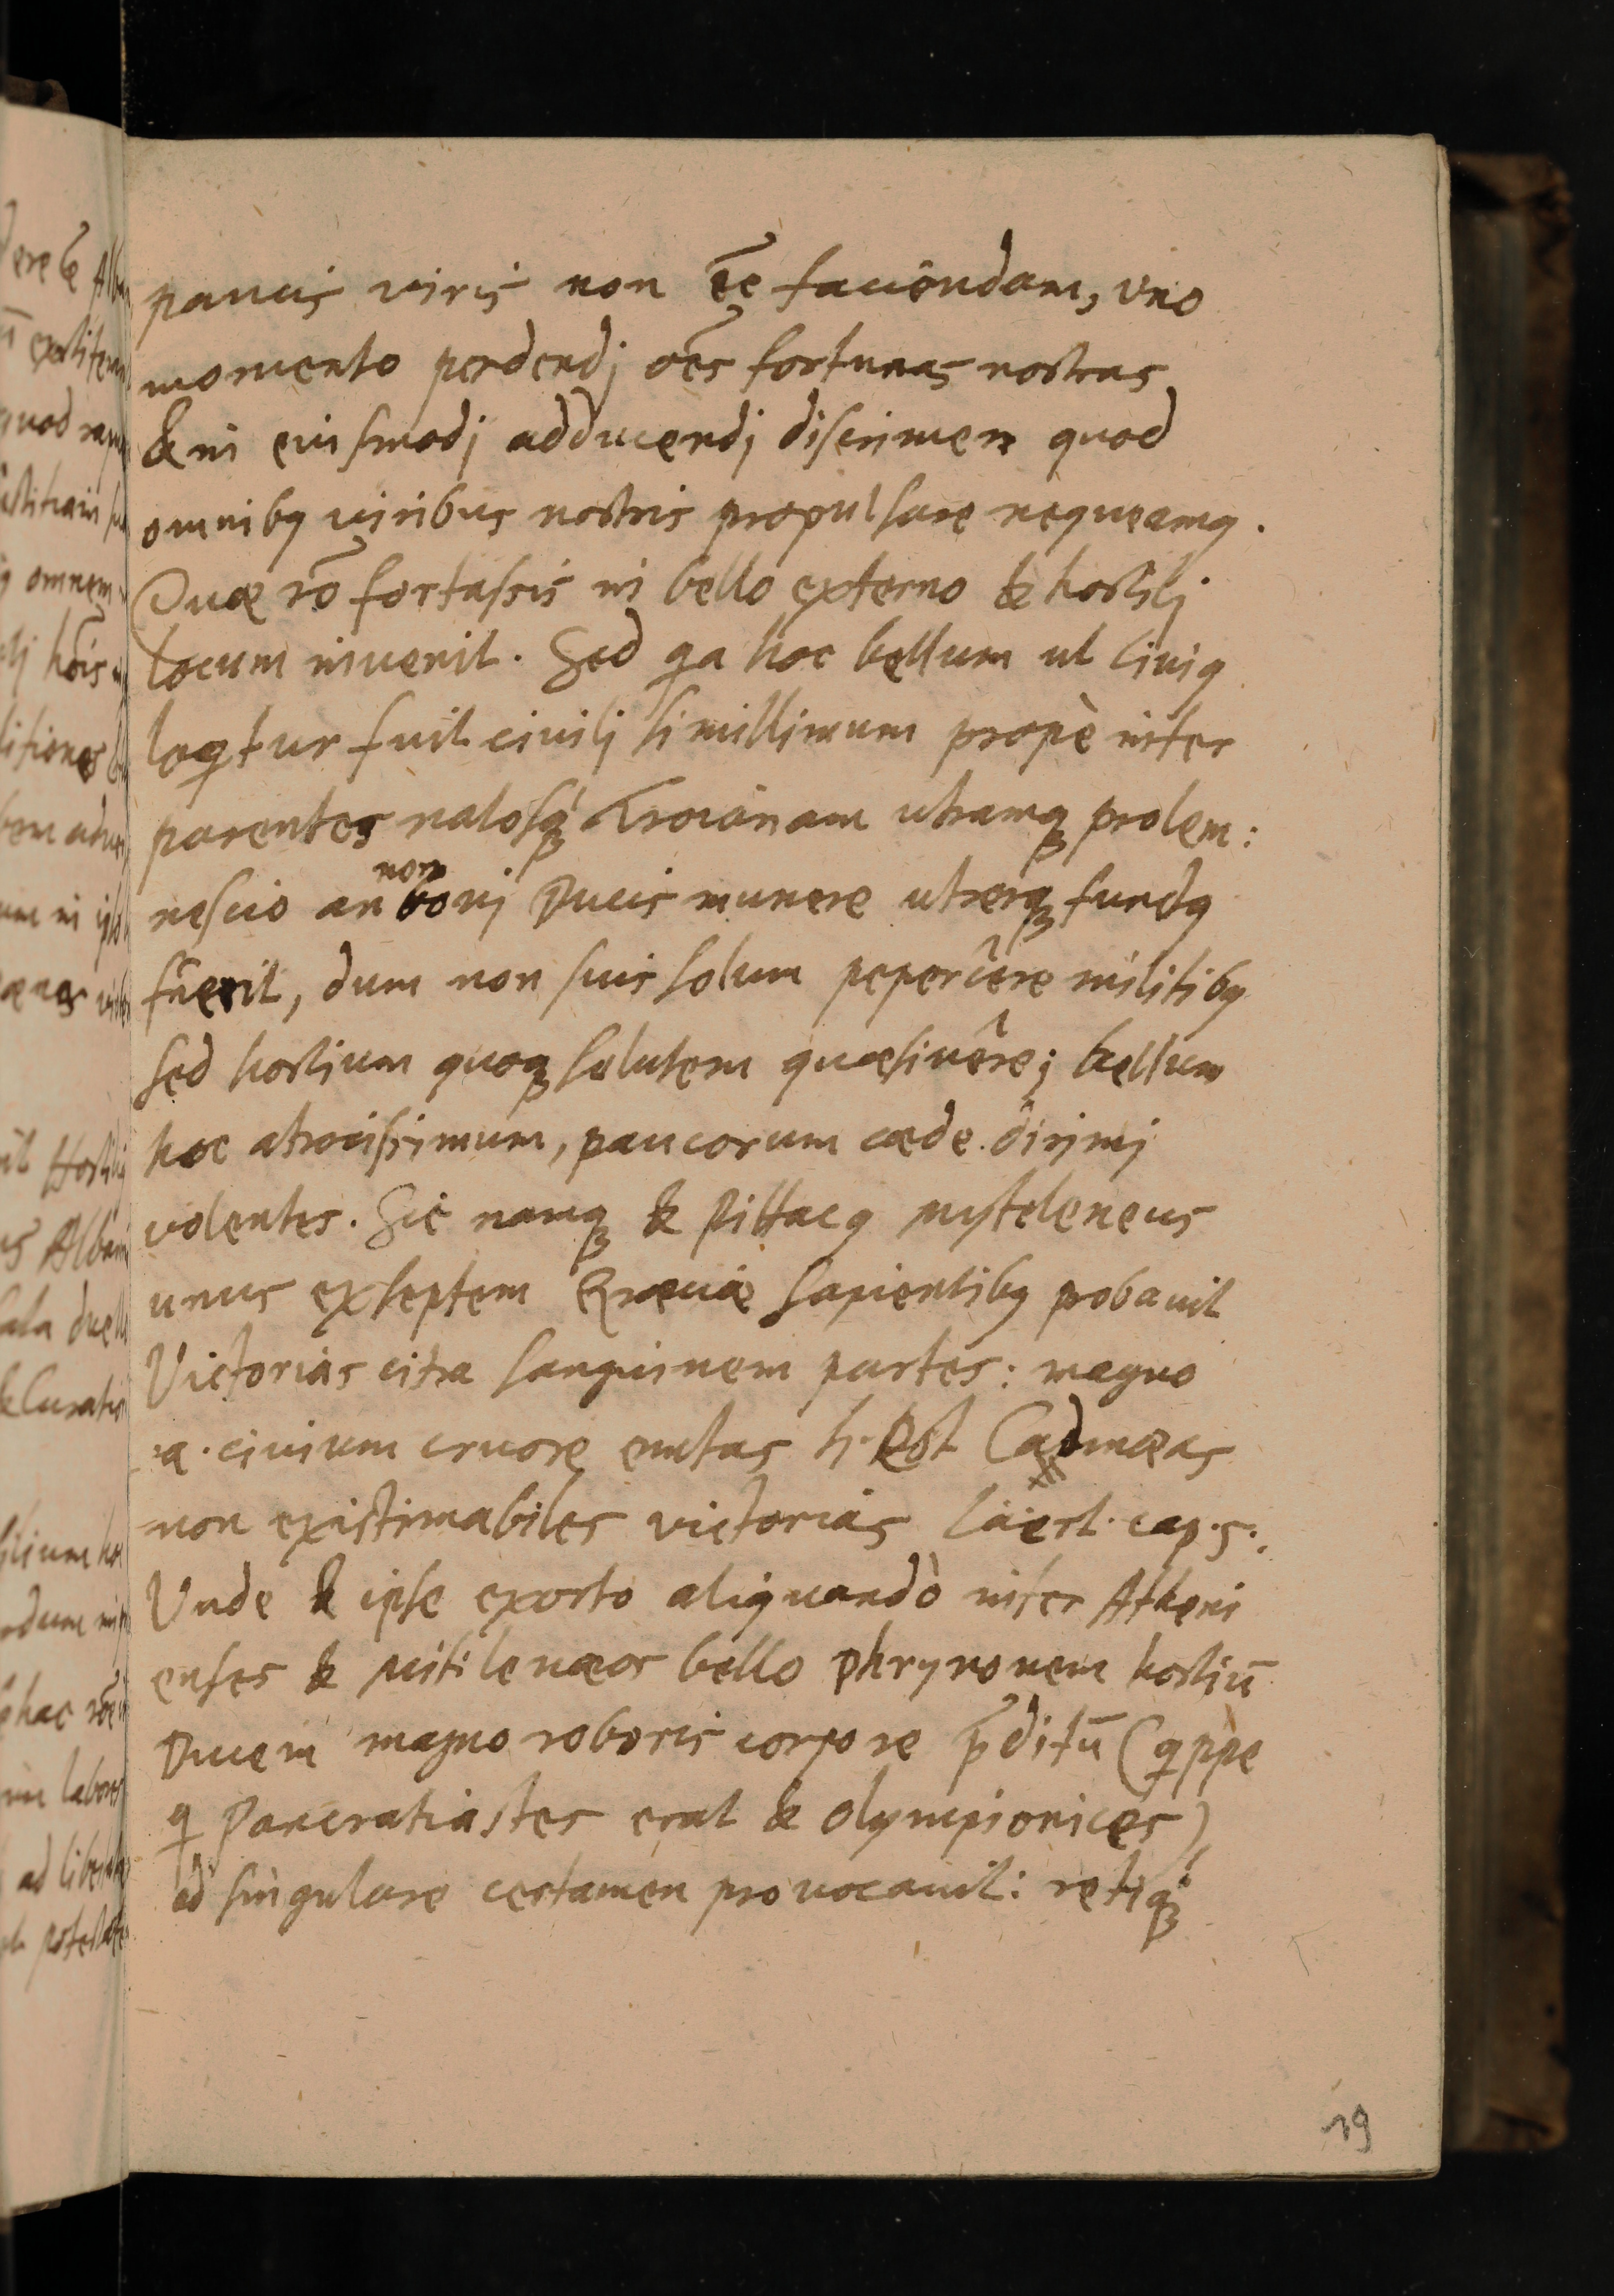 paucis viris non e͞e faciendam, vno
momento perdendj oẽs fortunas nostras
& in eiusmodj adducendj discrimen quod
omnibꝰ viribus nostris propulsare nequeamꝰ.
Quæ rõ fortassis in bello externo & hostilj
locum inuenit. Sed qa hoc bellum ut Liuiꝰ
loqtur fuit civilj simillimum propè inter
parentes natosqꝫ́ Troianam utramqꝫ prolem:
nescio an non bonj Ducis munere uterqꝫ functꝰ
fuerit, dum non suis solum pepercêre militibꝰ
sed hostium quoqꝫ salutem quæsiuêre; bellum
hoc atrocissimum, paucorum cæde dirimj
volentes. Sic namqꝫ & Pittacꝰ Myteleneus
unus ex septem Græciæ sapientibꝰ probauit
Victorias citra sanguinem partes: magno
.a. civium cruore emtas h. Cadmæas
non existimabiles victorias Läert. cap. 5.
Unde & ipse exorto aliquandò inter Atheni
enses & Mitilenæos bello Phrynonem hostiũ
Ducem magno roboris corpore p̃ditũ (qppe
q Pancratiastes erat & Olympionices)
ad singulare certamen prouocauit: retiqꝫ́
19